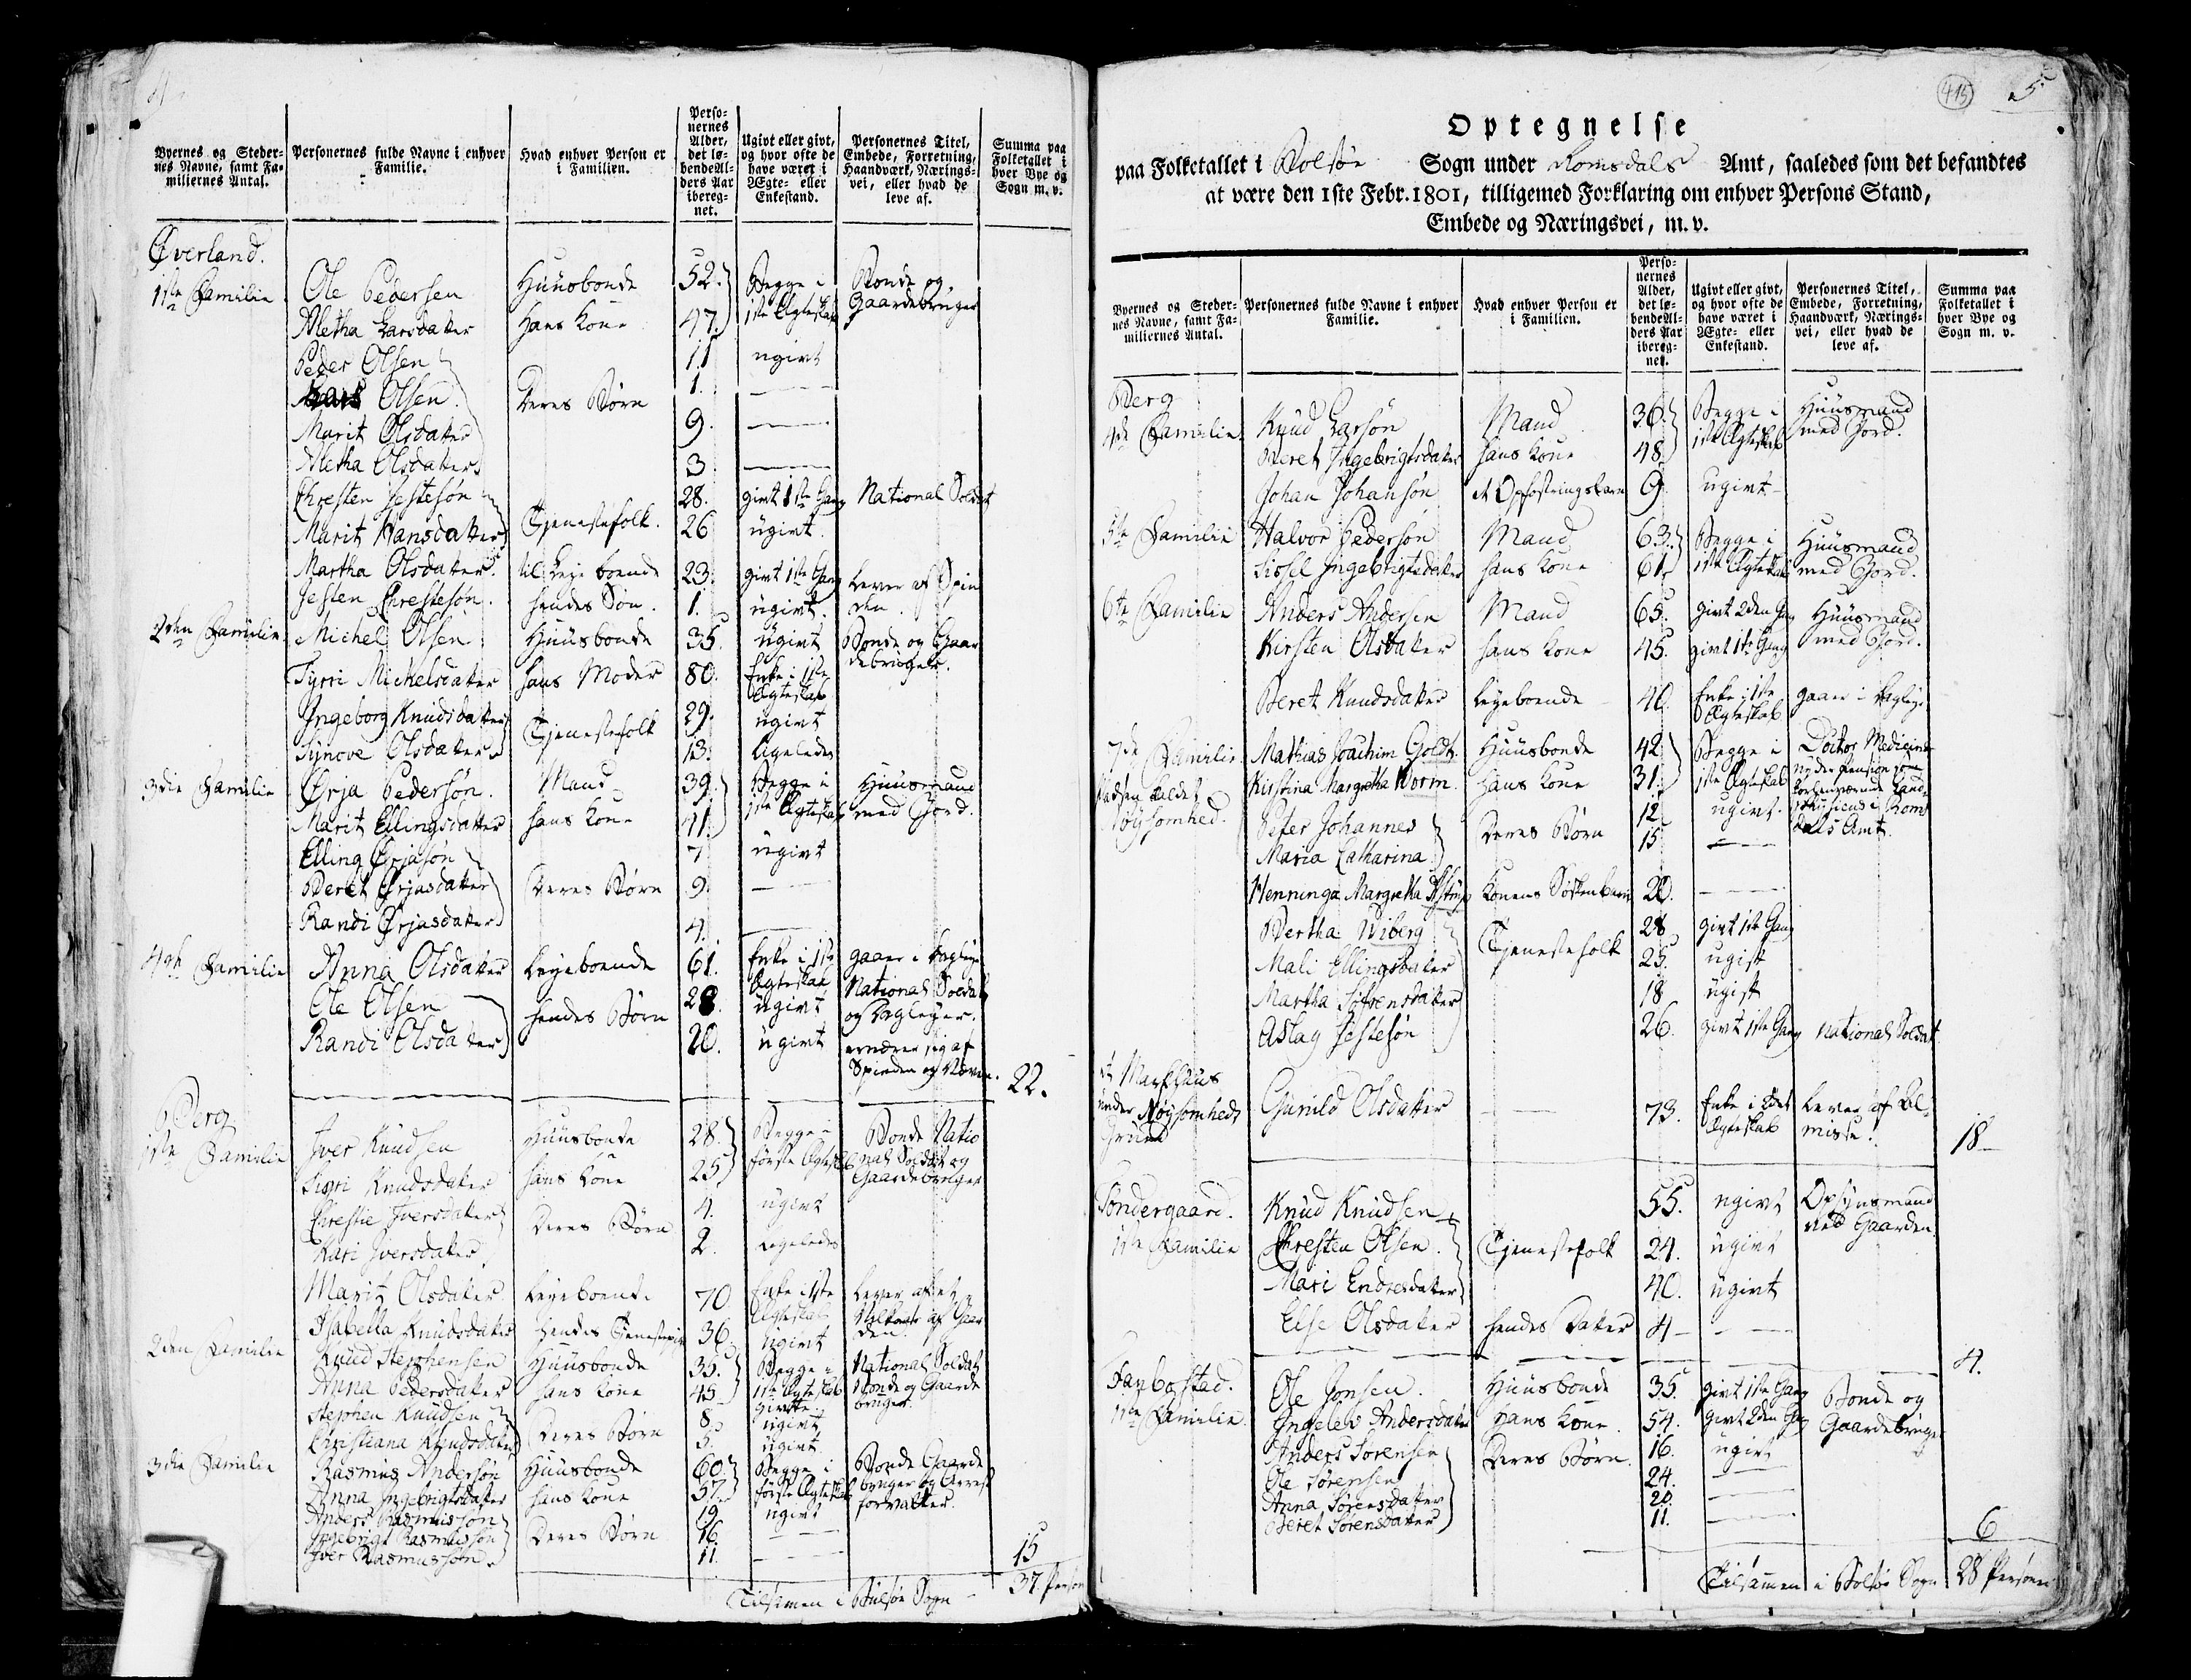 4
Byernes og Steder-
nes Navne, samt Fa-
miliernes Antal.
Personernes fulde Navne i enhver
Familie.
Hvad enhver Person er
i Familien.
Perso-
nernes
Alder,
det lø-
bende Al-
ders Aar
ibereg-
net.
Ugivt eller givt,
og hvor ofte de
have været i
Ægte- eller
Enkestand.
Personernes Titel,
Embede, Forretning,
Haandværk, Nærings-
vei, eller hvad de
leve af.
Summa paa
Folketallet i
hver Bye og
Sogn m. v.
Øverland.
1ste Familie Ole Pedersen Huusbonde 52. Begge i 1ste Ægteskab Bonde og Gaardebruger
Aletha Larsdatter Hans Kone 47.
Peder Olsen 11 ugivt
Lars Olsen Deres Børn 1. —
Marit Olsdatter 9. —
Aletha Olsdatter 3 —
Chresten Jestesøn 28. givt 1ste Gang National Soldat
Marit Hansdatter Tjenestefolk. 26 ugivt.
Martha Olsdatter til Leje boende 23. givt 1ste Gang Lever af Spin
Jesten Chrestesøn. hendes Søn. 1. ugivt. den.
2den Familie Michel Olsen Huusbonde 35. ugivt Bonde og Gaar
debruger.
Tyrri Michelsdatter hans Moder 80. Enke i 1ste Ægteskab
Ingeborg Knudsdatter Tjenestefolk 29. ugivt
Synove Olsdatter 13. ligeledes
3die Familie Ørja Pedersøn. Mand 39. Begge i 1ste Ægteskab Huusmand med Jord.
Marit Ellingsdatter hans Kone 41.
Elling Ørjasøn 7 ugivt
Beret Ørjasdatter Deres Børn 9. —
Randi Ørjasdatter 4. —
4de Familie Anna Olsdatter Lejeboende 61. Enke i 1ste Ægteskab gaaer i Dagleje
Ole Olsen hendes Børn 28. ugivt National Soldat og Daglejer.
Randi Olsdatter 20. ugivt ernærer sig af Spinden og Væven. 22.
Berg
1ste Familie Iver Knudsen Huusbonde 28. Begge i første Ægteskab Bonde Natio
nal Soldat og Gaardebruger
Sigri Knudsdatter hans Kone 25
Chrestie Iversdatter Deres Børn 4. ugivt
Kari Iversdatter 2. Ligeledes
Marit Olsdatter Lejeboende 70. Enke i 1ste Ægteskab Lever af et Vilkaar af Gaar
den.
Isabella Knudsdatter Hendes Tienestepige 36. ugivt
2den Familie Knud Stephensen Huusbonde 35. Begge i 1ste Ægteskab National Soldat Bonde og Gaarde
bruger.
Anna Pedersdatter hans Kone 45. givte
Stephen Knudsen Deres Børn 8. ugivt
Christiana Knudsdatter 5. ugivt.
3die Familie Rasmus Andersøn Huusbonde 60. Begge i første Ægteskab Bonde Gaarde
bruger og Arrest
forvalter.
Anna Ingebrigtsdatter hans Kone 57.
Anders Rasmussøn 19 ugivt
Ingebrigt Rasmussøn Deres Børn 16. —
Iver Rasmussøn. 11. — 15
Tilsamen i Bolsøe Sogn 37. Person
415
5.
Optegnelse
paa Folketallet i Bolsøe Sogn under Romsdals Amt, saaledes som det befandtes
at være den 1ste Febr. 1801, tilligemed Forklaring om enhver Persons Stand,
Embede og Næringsvei, m. v.
Byernes og Steder-
nes Navne, samt Fa-
miliernes Antal.
Personernes fulde Navne i enhver
Familie.
Hvad enhver Person er
i Familien.
Perso-
nernes
Alder,
det lø-
bende Al-
ders Aar
ibereg-
net.
Ugivt eller givt,
og hvor ofte de
have været i
Ægte- eller
Enkestand.
Personernes Titel,
Embede, Forretning,
Haandværk, Nærings-
vei, eller hvad de
leve af.
Summa paa
Folketallet i
hver Bye og
Sogn m. v.
Berg
4de Familie Knud Larsøn Mand 36. Begge i 1ste Ægteskab Huusmand med Jord.
Beret Ingebrigtsdatter hans Kone 48.
Johan Johansøn et Opfostringsbarn 9. ugivt
5te Familie Halvor Pedersøn Mand 63. Begge i 1ste Ægteskab Huusmand med Jord.
Sissel Ingebrigtsdatter hans Kone 61.
6te Familie Anders Andersen Mand 65. givt 2den Gang Huusmand med Jord.
Kirsten Olsdatter hans Kone 45. givt 1ste Gang
Beret Knudsdatter Lejeboende 40. Enke i 1ste Ægteskab gaaer i Dagleje
7de Familie Mathias Joachim Goldt. Huusbonde 42 Begge i 1ste Ægteskab Doctor Medicinæ
nyder Pension som
forhenværende Land
Physicus i Roms
dals Amt.
Pladsen kaldet
Nøysomhed.
Kirstina Margretha Worm. Hans Kone 31.
Peter Johannes Deres Børn 12 ugivt.
Maria Catharina 15 —
Henninga Margretha Konens Søskenbarn 20. —
Bertha Wiberg Tjenestefolk 28 givt 1ste Gang
Mali Ellingsdatter 25. ugift
Martha Sørensdatter 18 ugift
Aslag Jestesøn 26. givt 1ste Gang National Soldat
under Nøysomheds
Grund
Gunild Olsdatter — 73. Enke i 2det Ægteskab Lever af Al-
misse. 18—
Søndergaard. Knud Knudsen 55. ugivt Opsynsmand ved Gaarden
1ste Familie Chresten Olsen. Tjenestefolk 24. ugivt
Mari Endresdatter 40. ugivt
Else Olsdatter hendes Datter 4 — — 4.
Fanbostad.
1ste Familie Ole Jonsen. Huusbonde 35. givt 1ste Gang Bonde og Gaardebruger
Ingelev Andersdatter Hans Kone 54. givt 2den Gang
Anders Sørensen Deres Børn. 16. ugivt
Ole Sørensen 24. —
Anna Sørensdatter 20. —
Beret Sørensdatter 11. — 6
Tilsamen i Bolsøe Sogn 28 Personer